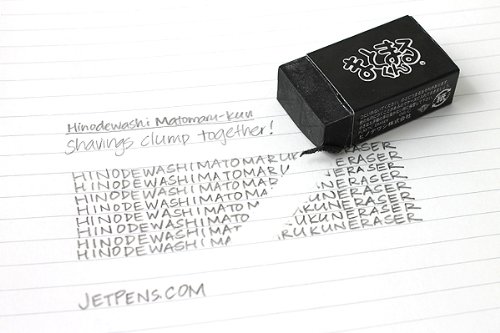 まとまる
くん
ヒノデワシ株式会社
Hinodewashi Matomaru-kun
shavings clump together!
HINODEWASHIMATOMARUK ERASER
HINODEWASHIMATOMARU ERASER
HINODEWASHIMATOMAR NERASER
HINODEWASHIMATOMA UNERASER
HINODEWASHIMATOM UNERASER
HINODEWASHIMATO KUNERASER
HINODEWASHIMAT UKUNERASER
HINODEWASHIMA RUKUNERASER
JETPENS.COM